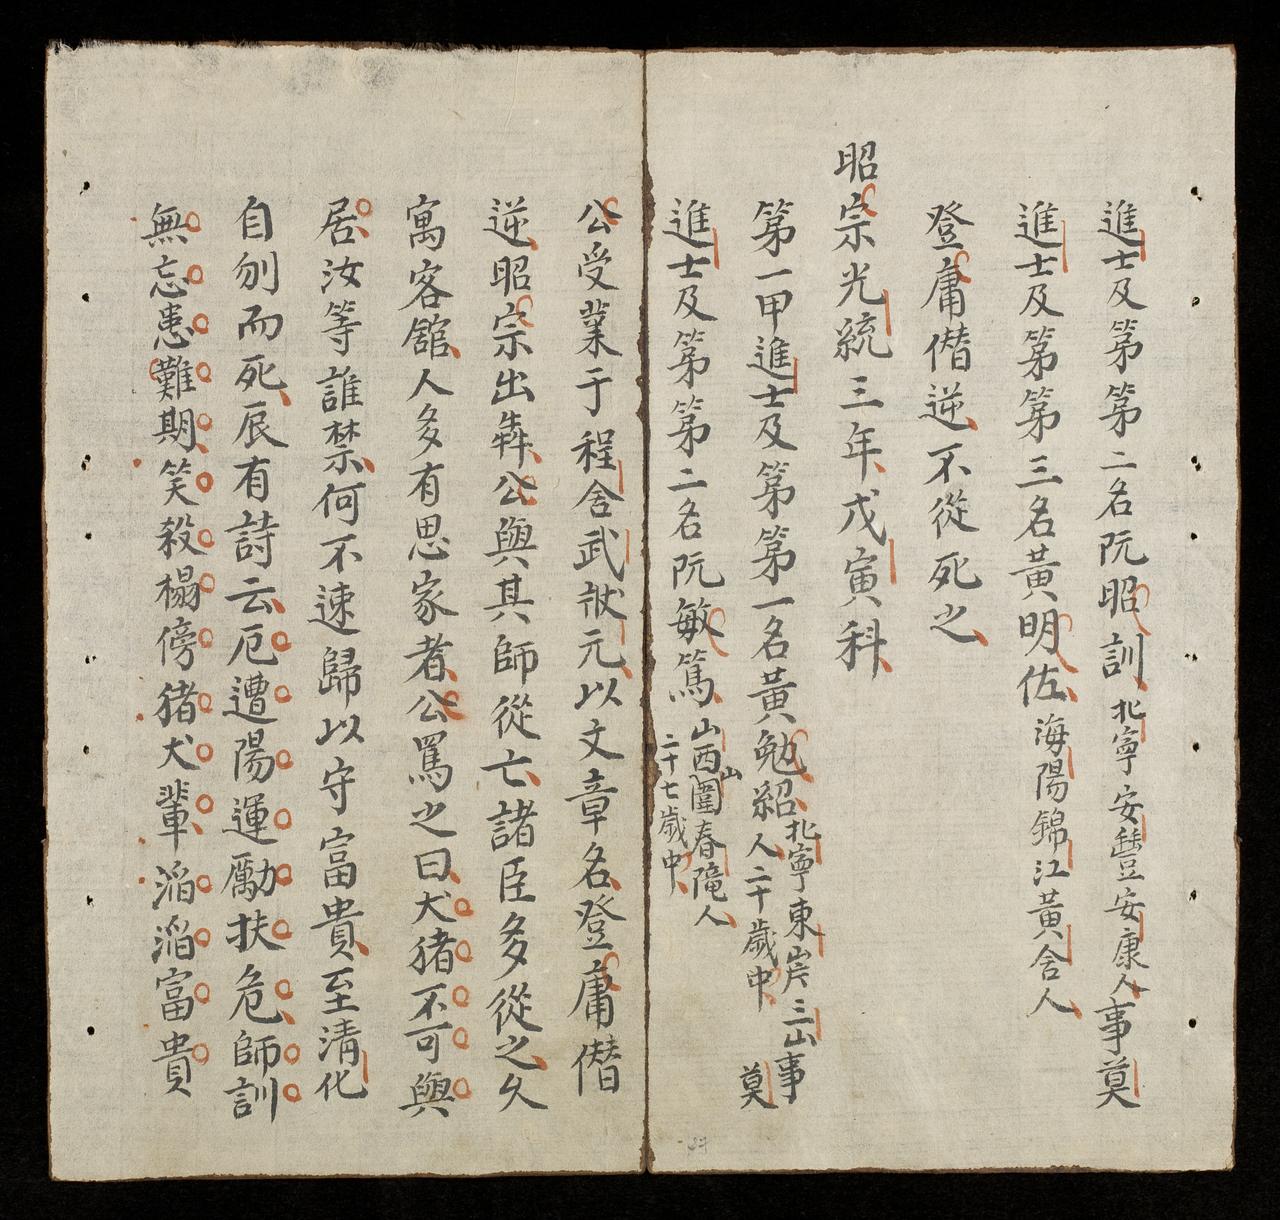 進士及第第二名阮昭訓北寧安豐安康人事莫
進士及第第三名黃明佐海陽錦江黃舍人
登庸僭逆不從死之
昭宗光統三年戊寅科
第一甲進士及第第一名黃勉紹北寧東岸三山人二十歲中事莫
進士及第第二名阮敏篤山西山圍春隆人二十七歲中
公受業于程舍武狀元以文章名登庸僭
逆昭宗出犇公與其師從亡諸臣多從之久
寓客舘人多有思家者公罵之曰犬猪不可與
居汝等誰禁何不速歸以守富貴至清化
自刎而死辰有詩云厄遭陽運勵扶危師訓
無忘患難期笑殺榻傍猪犬輩滔滔富貴